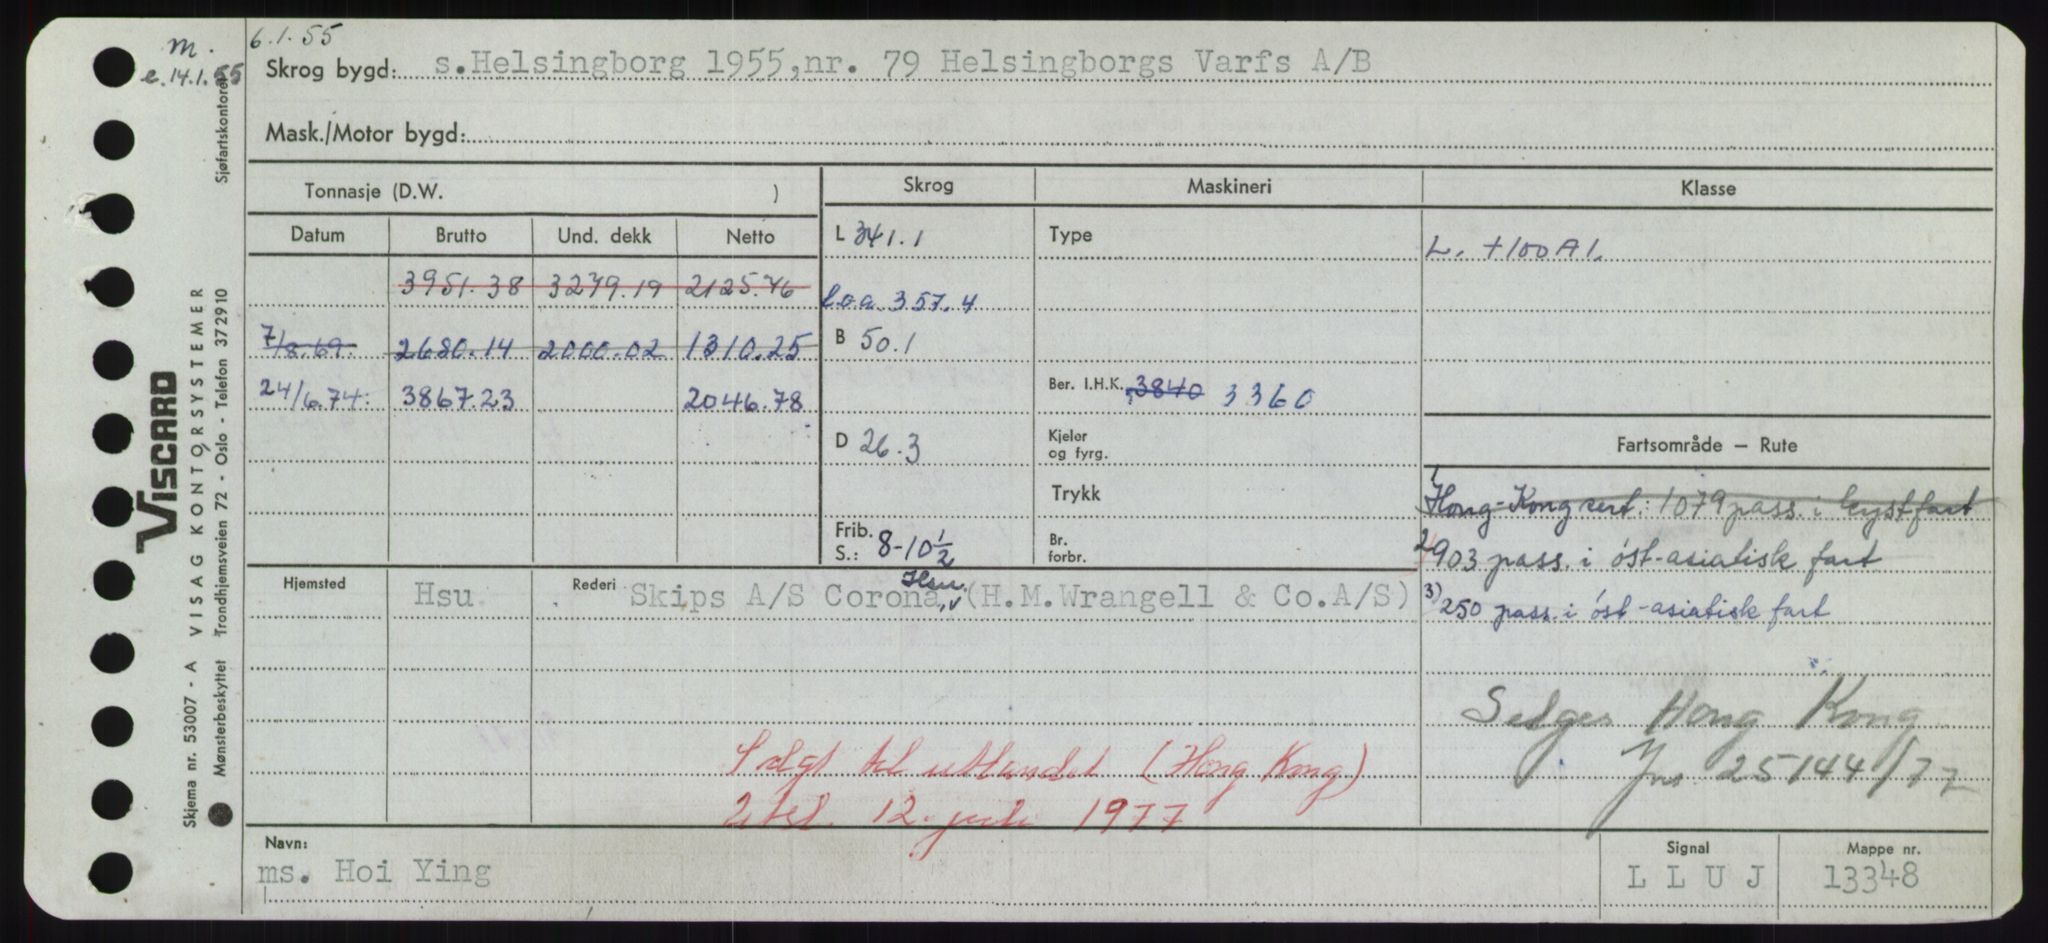 m.
e. 14.1.55
6.1.55
Skrog bygd: s.Helsingborg 1955,nr. 79 Helsingborgs Varfs A/B
Mask./Motor bygd:
Tonnasje (D.W. )
Skrog Maskineri Klasse
Datum Brutto Und. dekk Netto
L 341.1 Type L. +100A1.
3951.38 3279.19 2125.76
l.o.a. 357.4
7/8.69. 2680.14 2000.02 1310.25
B 50.1
24/6.74. 3867.23 2046.78
Ber. I.H.K. 3840 3360
D 26.3
Kjeler
og fyrg.
Fartsområde – Rute
Trykk
1 Hong-Kong sert: 1079 pass. i kystfart
Frib.
S.: 8-10½
Br.
forbr.
2 903 pass. i öst-asiatisk fart
Hjemsted Hsu Rederi Skips A/S Corona, Hsu. (H.M.Wrangell & Co.A/S)
3) 250 pass. i öst-asiatisk fart
Selges Hong Kong
Jnr. 25144/77
Solgt til utlandet (Hong Kong)
12. juli 1977
Navn:
ms. Hoi Ying
Signal
L L U J
Mappe nr.
13348
Skjema nr. 53007 - A VISAG KONTORSYSTEMER
VISCARD
Mønsterbeskyttet Trondhjemsveien 72 - Oslo - Telefon 372910
Sjøfartskontoret